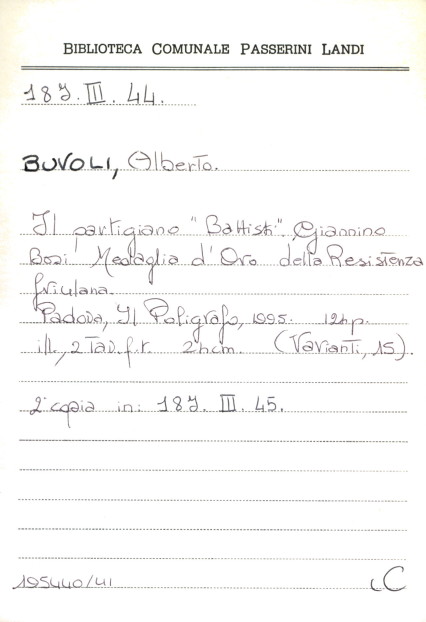 BIBLIOTECA COMUNALE PASSERINI LANDI
187. III. 44.
BUVOLI, Alberto.
Il partigiano "Battisti". Giannino
Bosi Medaglia d'Oro della Resistenza
friulana.
Padova, Il Poligrafo, 1995. 124p.
ill., 2 Tav. f.t. 24cm. (Varianti, 15).
2ª copia in: 187. III. 45.
195440/41
C